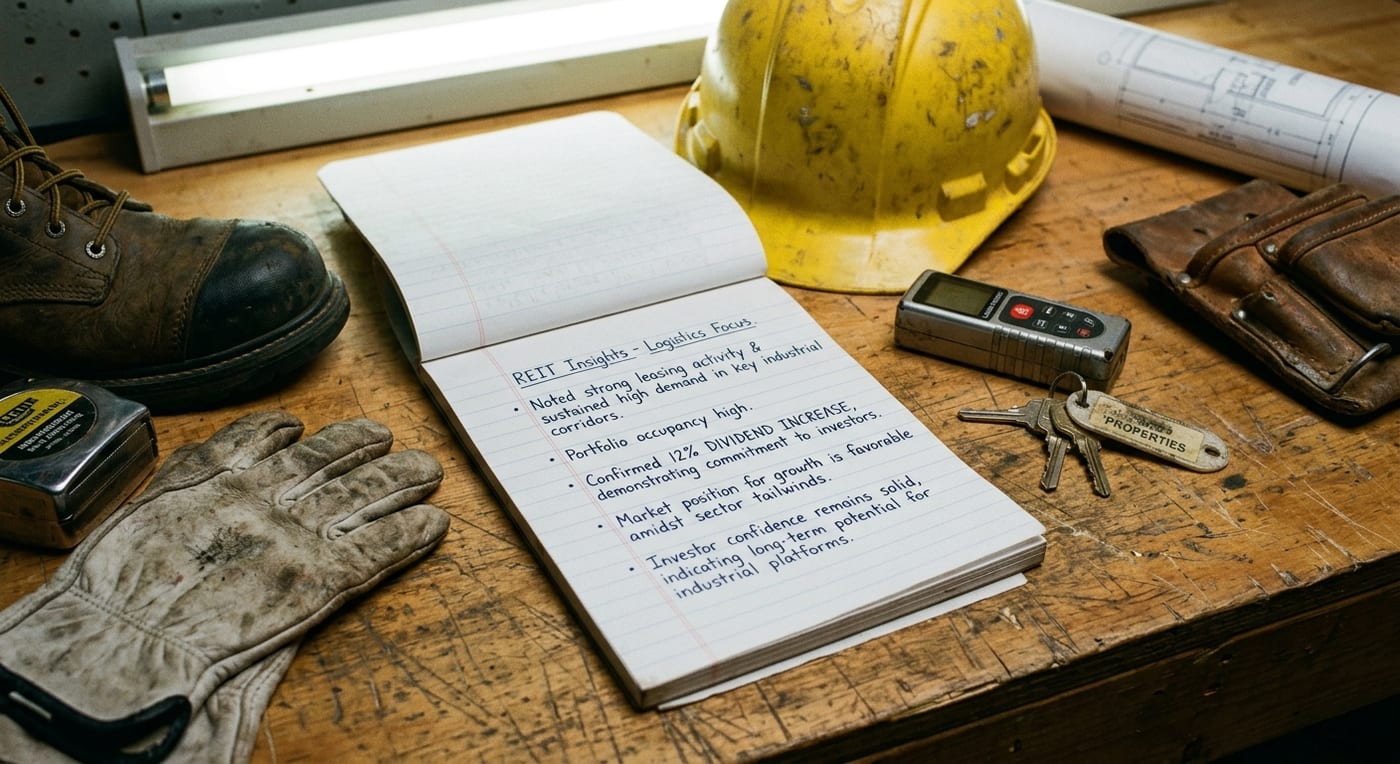 REIT Insights - Logistics Focus.
• Noted strong leasing activity &
sustained high demand in key industrial
corridors.
• Portfolio occupancy high.
• Confirmed 12% DIVIDEND INCREASE,
demonstrating commitment to investors.
• Market position for growth is favorable
amidst sector tailwinds.
• Investor confidence remains solid,
indicating long-term potential for
industrial platforms.
PROPERTIES